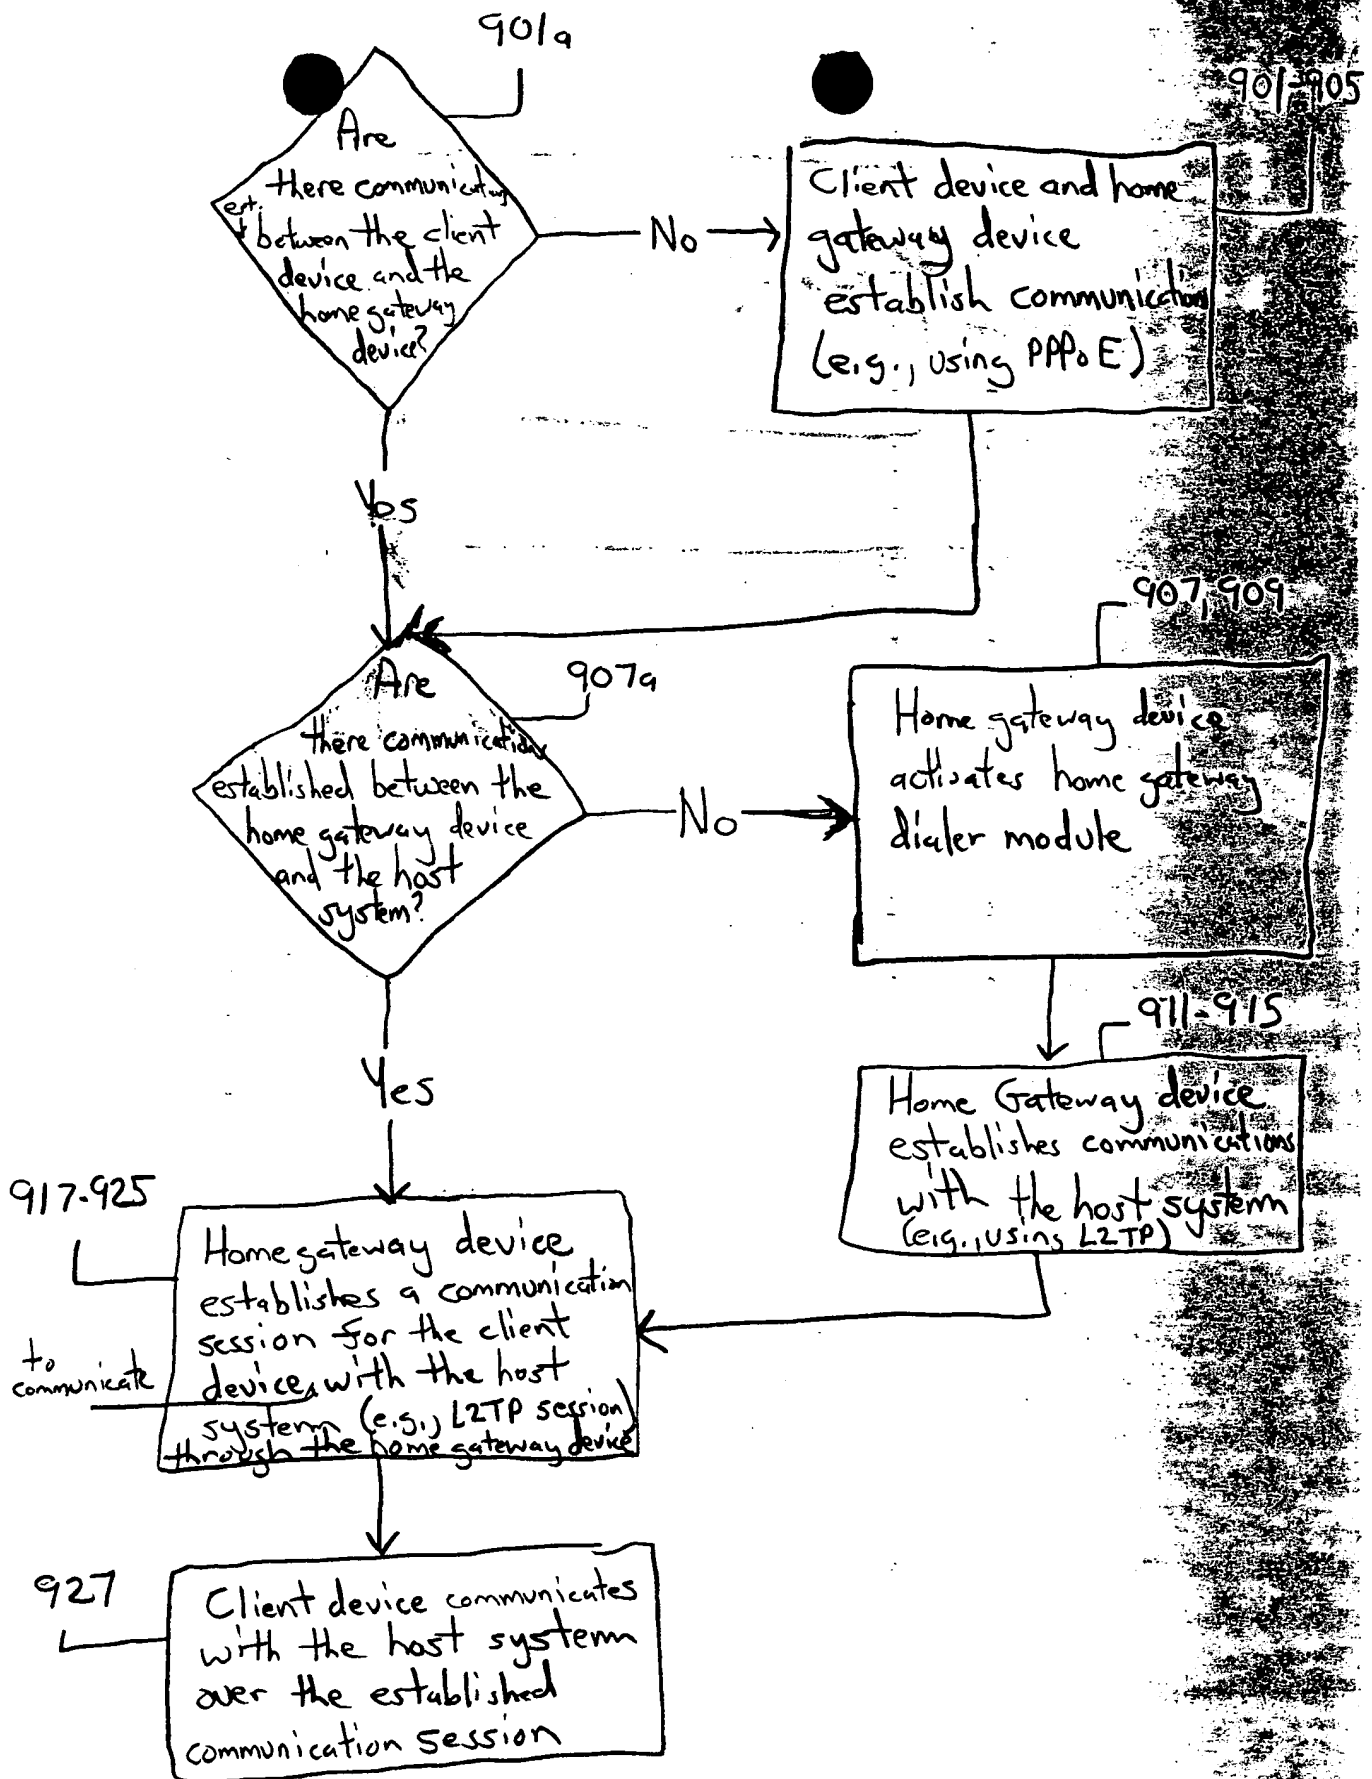 901a
Are
there communications
est.
between the client
device and the
home gateway
device?
No
901-905
Client device and home
gateway device
establish communications
(e.g., using PPPoE)
Yes
907a
Are
there communications
established between the
home gateway device
and the host
system?
No
907, 909
Home gateway device
activates home gateway
dialer module
Yes
911-915
Home Gateway device
establishes communications
with the host system
(e.g., using L2TP)
917-925
Home gateway device
establishes a communication
session for the client
device with the host
to
communicate
system (e.g., L2TP session)
through the home gateway device
927
Client device communicates
with the host system
over the established
communication session